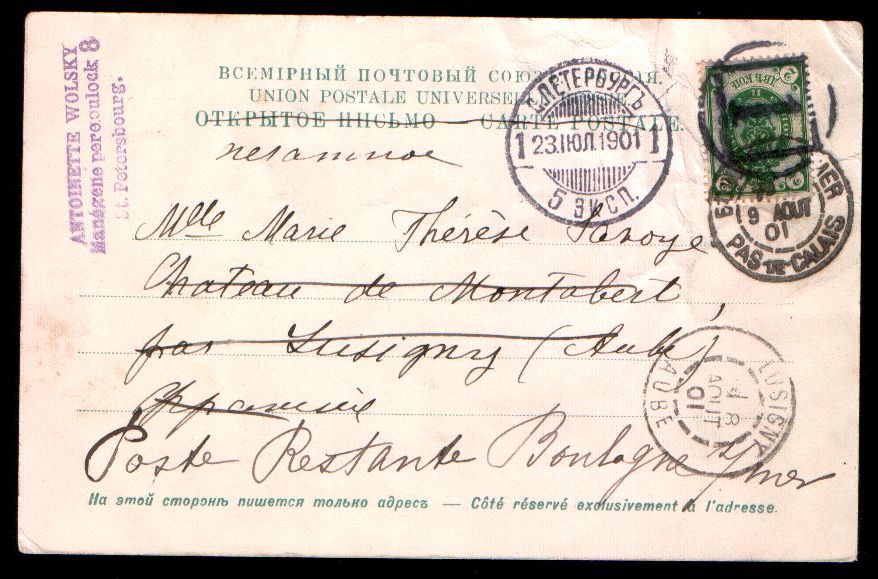 ANTOINETTE WOLSKY
Manégené péréoulock 8
St. Petersbourg.
ВСЕМІРНЫЙ ПОЧТОВЫЙ СОЮЗЪ
UNION POSTALE UNIVERSELLE
ОТКРЫТОЕ ПИСЬМО — CARTE POSTALE.
печатное
С.ПЕТЕРБУРГЪ
1 23.ІЮЛ.1901 1
5 ЭК.СП.
2 ДВѢ КОП. 2
T
MER
19 AOUT
01
PAS-DE-CALAIS
Mlle Marie Thérèse Savoye
Chateau de Montabert,
par Lusigny (Aube)
LUSIGNY
8
AOUT
01
AUBE
Poste Restante Boulogne s/mer
На этой сторонѣ пишется только адресъ — Côté réservé exclusivement à l'adresse.